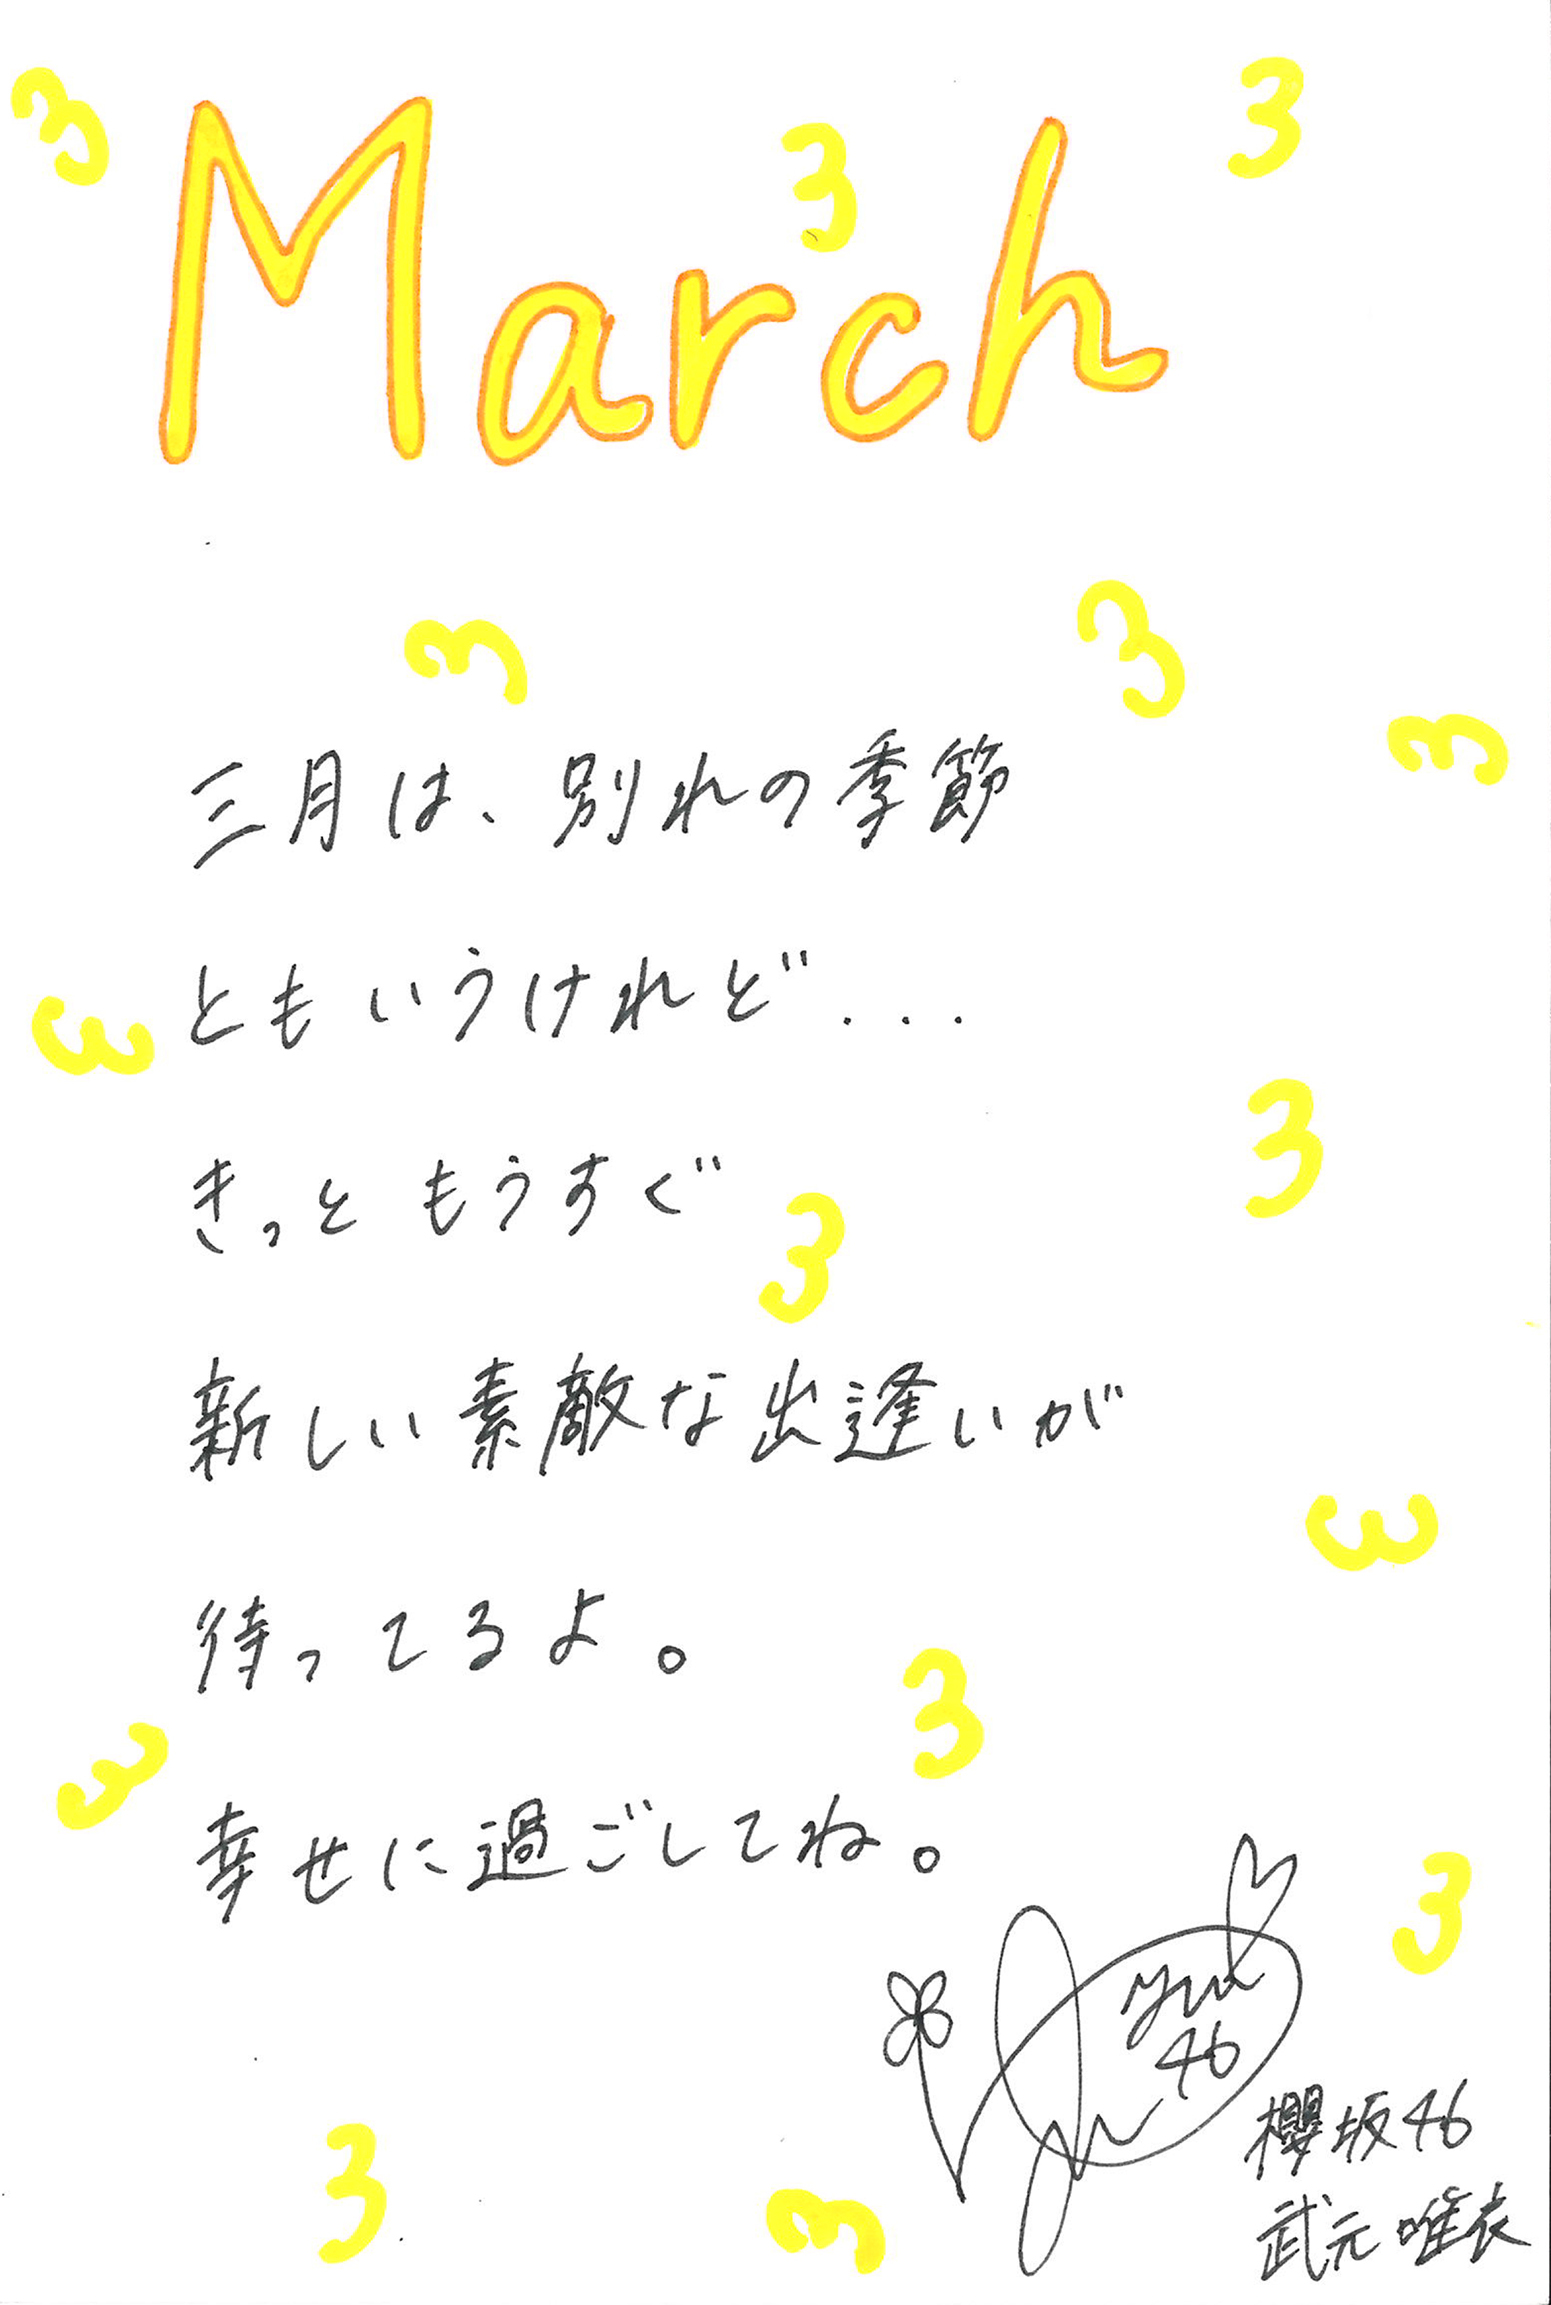 3
March
3
3
3
3
3
三月は、別れの季節
ともいうけれど...
3
3
きっと もうすぐ
3
新しい素敵な出逢いが
3
待ってるよ。
3
3
幸せに過ごしてね。
3
yui
46
櫻坂46
武元唯衣
3
3